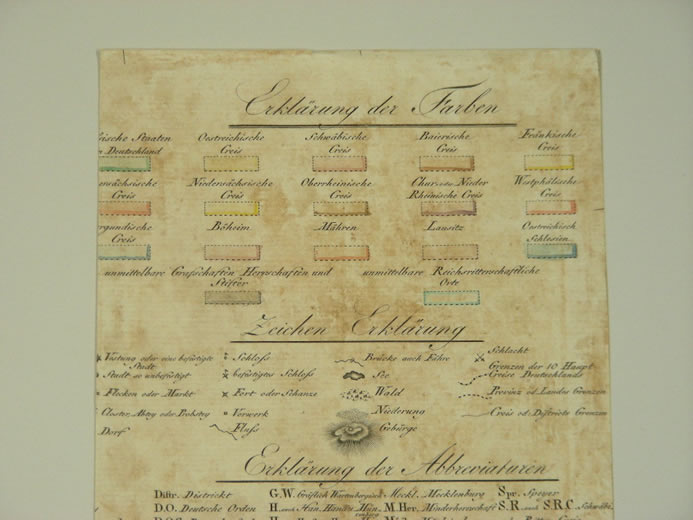 Erklärung der Farben
ische Staaten Oestreichische Schwäbische Baierische Fränkische
n Deutschland Creis Creis Creis Creis
ersächsische Niedersächsische Oberrheinische Chur und Nieder Westphälische
Creis Creis Creis Rheinische Creis Creis
rgundische Böheim Mähren Lausitz Oestreichisch
Creis Schlesien
unmittelbare Grafschaften Herrschaften und unmittelbare Reichsritterschaftliche
Stifter Orte
Zeichen Erklärung
Vestung oder eine befestigte Stadt
Stadt so unbefestigt
Flecken oder Markt
Closter, Abtey oder Probstey
Dorf
Schloss
befestigtes Schloss
Fort oder Schanze
Vorwerk
Fluss
Brücke auch Fähre
See
Wald
Niederung
Gebürge
Schlacht
Grenzen der 10 Haupt
Creise Deutschlands
Provinz od. Landes Grenzen
Creis od. Districts Grenzen
Erklärung der Abbreviaturen
Distr. District G.W. Gräflich Meckl. Mecklenburg Spr. Speyer
D.O. Deutsche Orden H. M.Her. Minderherrschaft S.R. S.R.C.